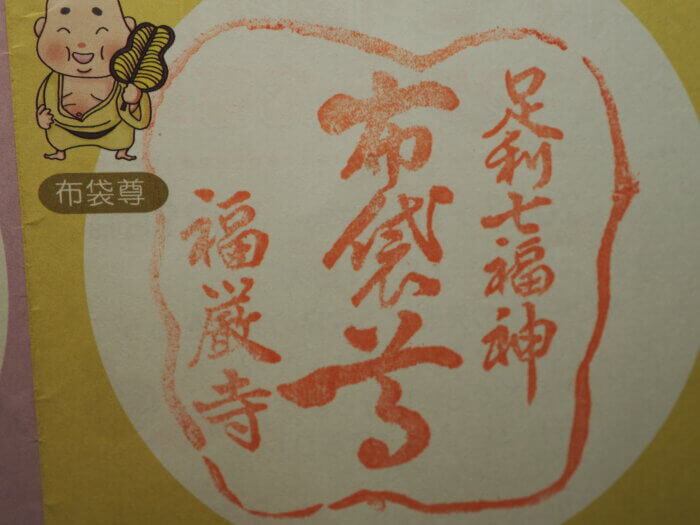 足利七福神
布袋尊
福厳寺
布袋尊